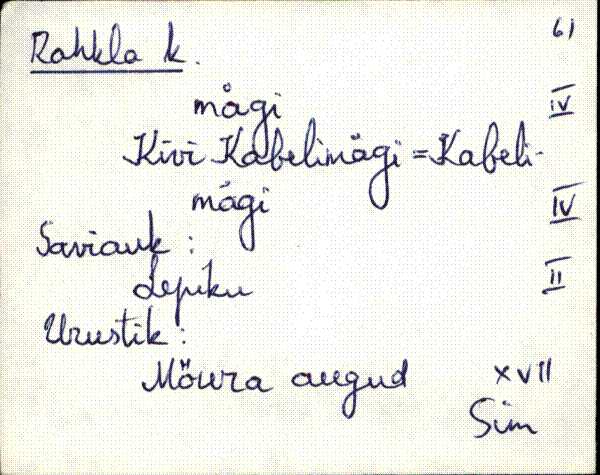 61
Rahkla k.
mägi IV
Kivi Kabelimägi = Kabeli-
mägi IV
Saviauk :
Lepiku II
Urustik :
Mõura augud XVII
Sim